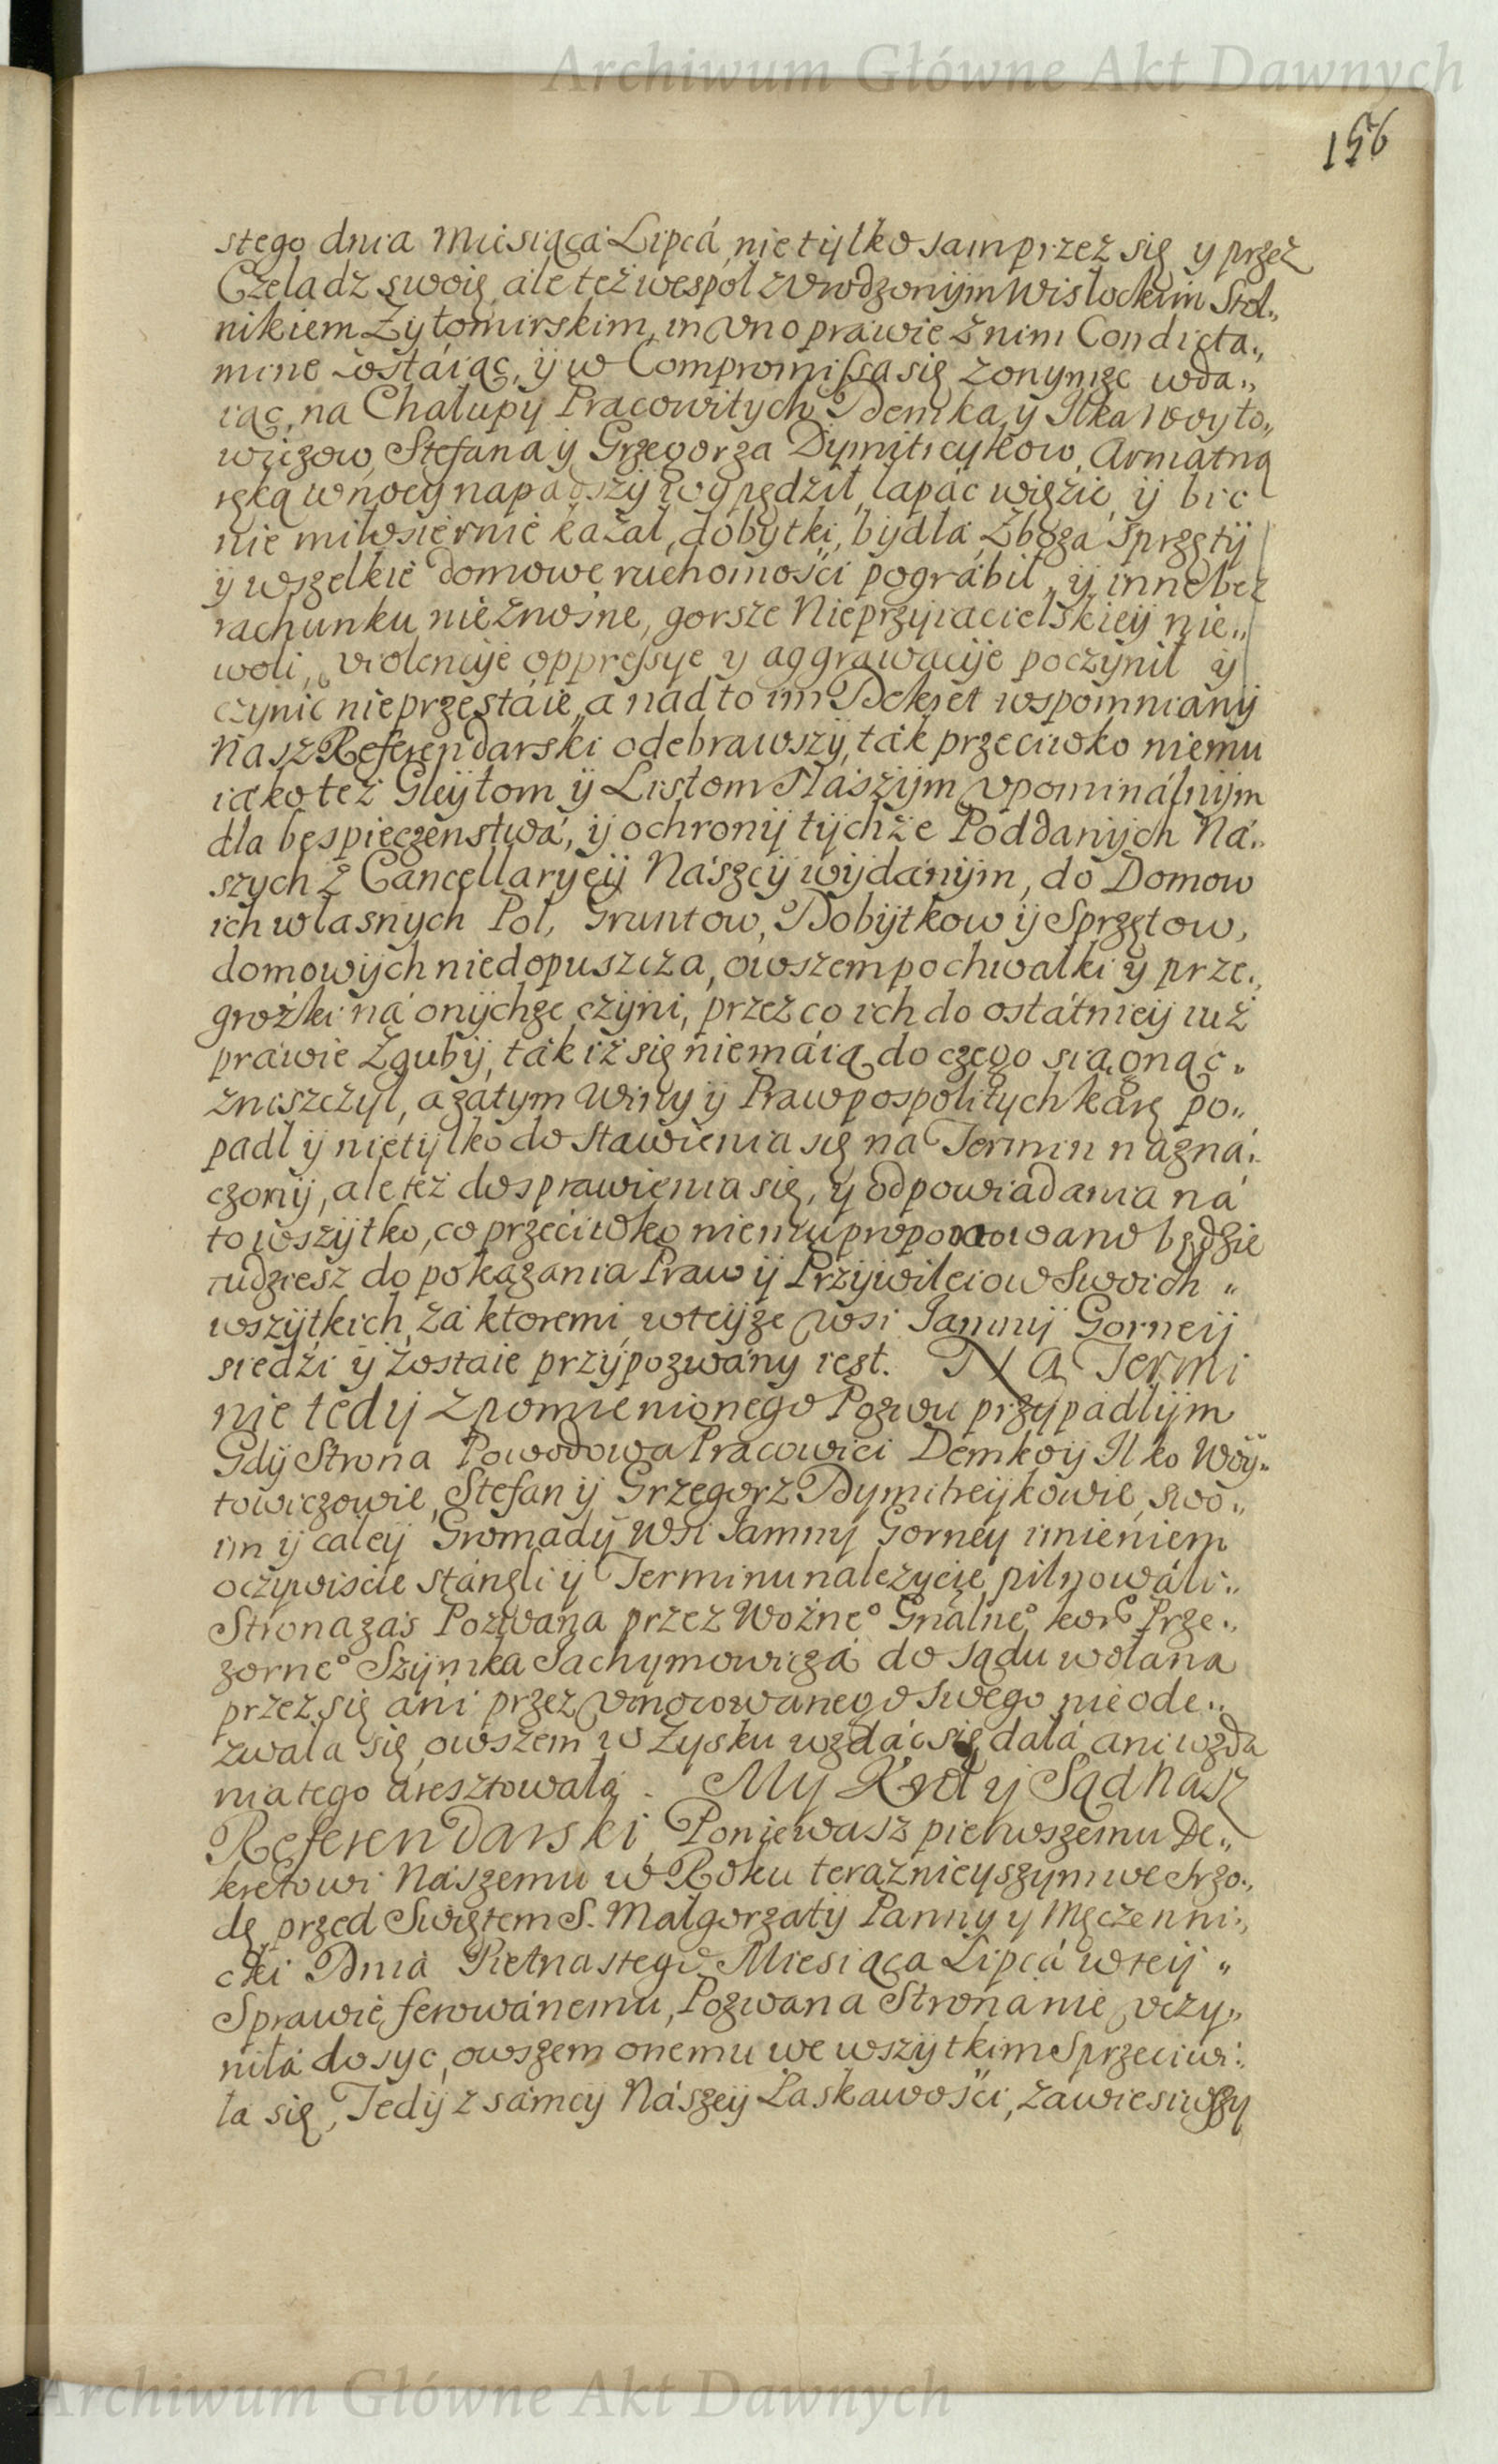 Archiwum Główne Akt Dawnych
156
stego dnia Miesiąca Lipcá, nie tylko sam przez się y przez
Czeladz swoię, ale też wespoł z Vrodzonÿm Wisłockim Stol„
nikiem Zytomirskim, in Vno prawie z nim Condicta„
mine zostáiąc, ÿ w Compromissa się z onymze wda„
iąc, na Chałupy Pracowitych Demka, y Ilka Woyto„
wiczow, Stefana ÿ Grzegorza Dymitreykow, Armatną
ręką w nocy napadszÿ wypędził, łapác więzić, ÿ bic
nie miłosiernie kazał, dobytki, bydła, Zboza Sprzętÿ
ÿ wszelkie domowe ruchomości pográbił, ÿ inne bez
rachunku nieznośne, gorsze Nieprzyiacielskieÿ nie„
woli, violencÿe oppressye y aggrawacÿe poczynił ÿ
czynić nie przestáie, a nad to im Dekret wspomnianÿ
Nasz Referendarski odebrawszÿ, ták przeciwko niemu
iáko też Gleÿtom ÿ Listom Nászÿm Vpominálnÿm
dla bespieczenstwá, ÿ ochronÿ tÿchże Poddanÿch Ná„
szych z Cancellaryeÿ Nászeÿ wÿdánÿm, do Domow
ich własnych Pol, Gruntow, Dobÿtkow ÿ Sprzętow,
domowÿch niedopuszcza, owszem pochwałki y prze„
grożki ná onÿchze czÿni, przez co ich do ostátnieÿ iuż
prawie Zgubÿ, ták iż się niemáią do czego siągnąc„
zniszczył, a zatym Winy ÿ Praw pospolitych karę po„
padł ÿ nie tÿlko do stawienia się na Termin názná„
czonÿ, ale też do sprawienia się, y odpowiadania ná
to wszÿtko, co przeciwko niemu proponowano będzie
tudziesz do pokázania Praw ÿ Przÿwileiow Swoich „
wszÿtkich, zá ktoremi wteÿże wsi Jamnÿ Gorneÿ
siedzi ÿ zostaie przÿpozwány iest. NA Termi
nie tedÿ z pomienionego Pozwu przÿpádłÿm
Gdÿ Strona Powodowa Pracowici Demko ÿ Ilko Wóÿ„
towiczowie, Stefan ÿ Grzegorz Dymitreÿkowie, swo„
im ÿ całeÿ Gromadÿ Wsi Jamny Gorney imieniem
oczywiscie stánęli ÿ Terminu nalezycie pilnowáli„
Strona zás Pozwana przez Woźne° Gnalne° kor° Prze„
zorne° Szÿmka Jachymowiczá do Sądu wołana
przez się ani przez Vmocowanego Swego nie ode„
zwała się, owszem w Zysku wzdác się dałá ani wzda
nia tego áresztowałá. My Krol ÿ Sąd Nász
Referendarski, Poniewasz pierwszemu De„
kretowi Nászemu w Roku teraznieyszym we Srzo„
dę przed Swiętem S. Małgorzatÿ Panny y Męczenni„
czki Dnia Piętnastego Miesiąca Lipcá w teÿ „
Sprawie ferowánemu, Pozwana Strona nie vczy„
niłá dosyc, owszem onemu we wszÿtkim Sprzeciwi„
ła się, Tedÿ z sámeÿ Nászeÿ Łaskáwości, zawiesiwszy
Archiwum Główne Akt Dawnych